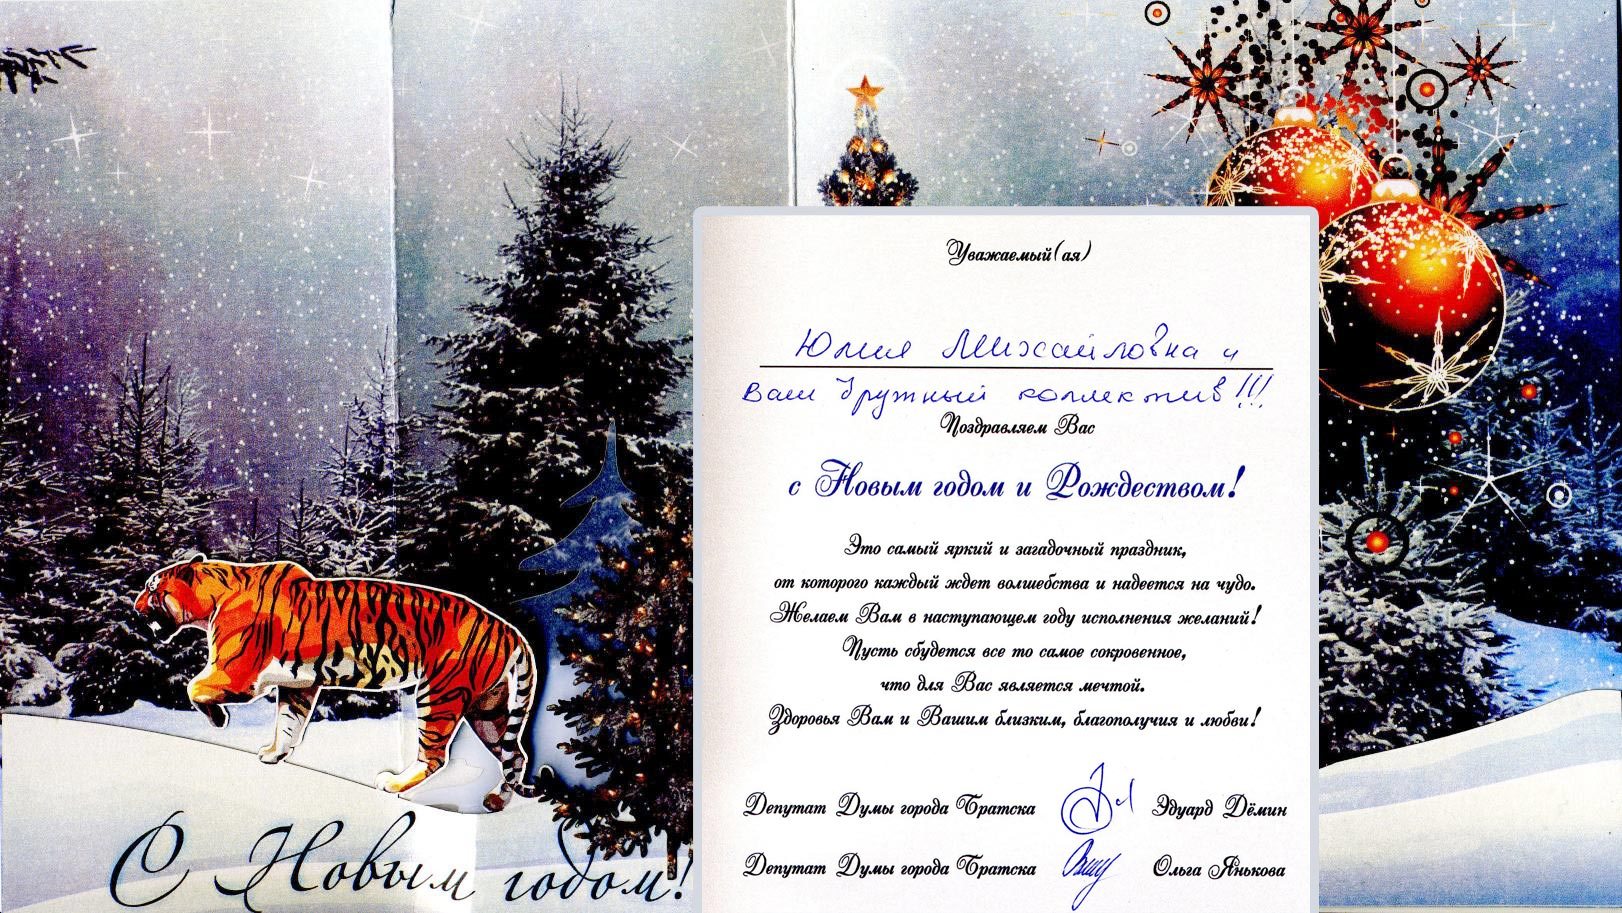 С Новым годом!
Уважаемый(ая)
Юлия Михайловна и
Ваш дружный коллектив!!!
Поздравляем Вас
с Новым годом и Рождеством!
Это самый яркий и загадочный праздник,
от которого каждый ждет волшебства и надеется на чудо.
Желаем Вам в наступающем году исполнения желаний!
Пусть сбудется все то самое сокровенное,
что для Вас является мечтой.
Здоровья Вам и Вашим близким, благополучия и любви!
Депутат Думы города Братска Эдуард Дёмин
Депутат Думы города Братска Ольга Янькова